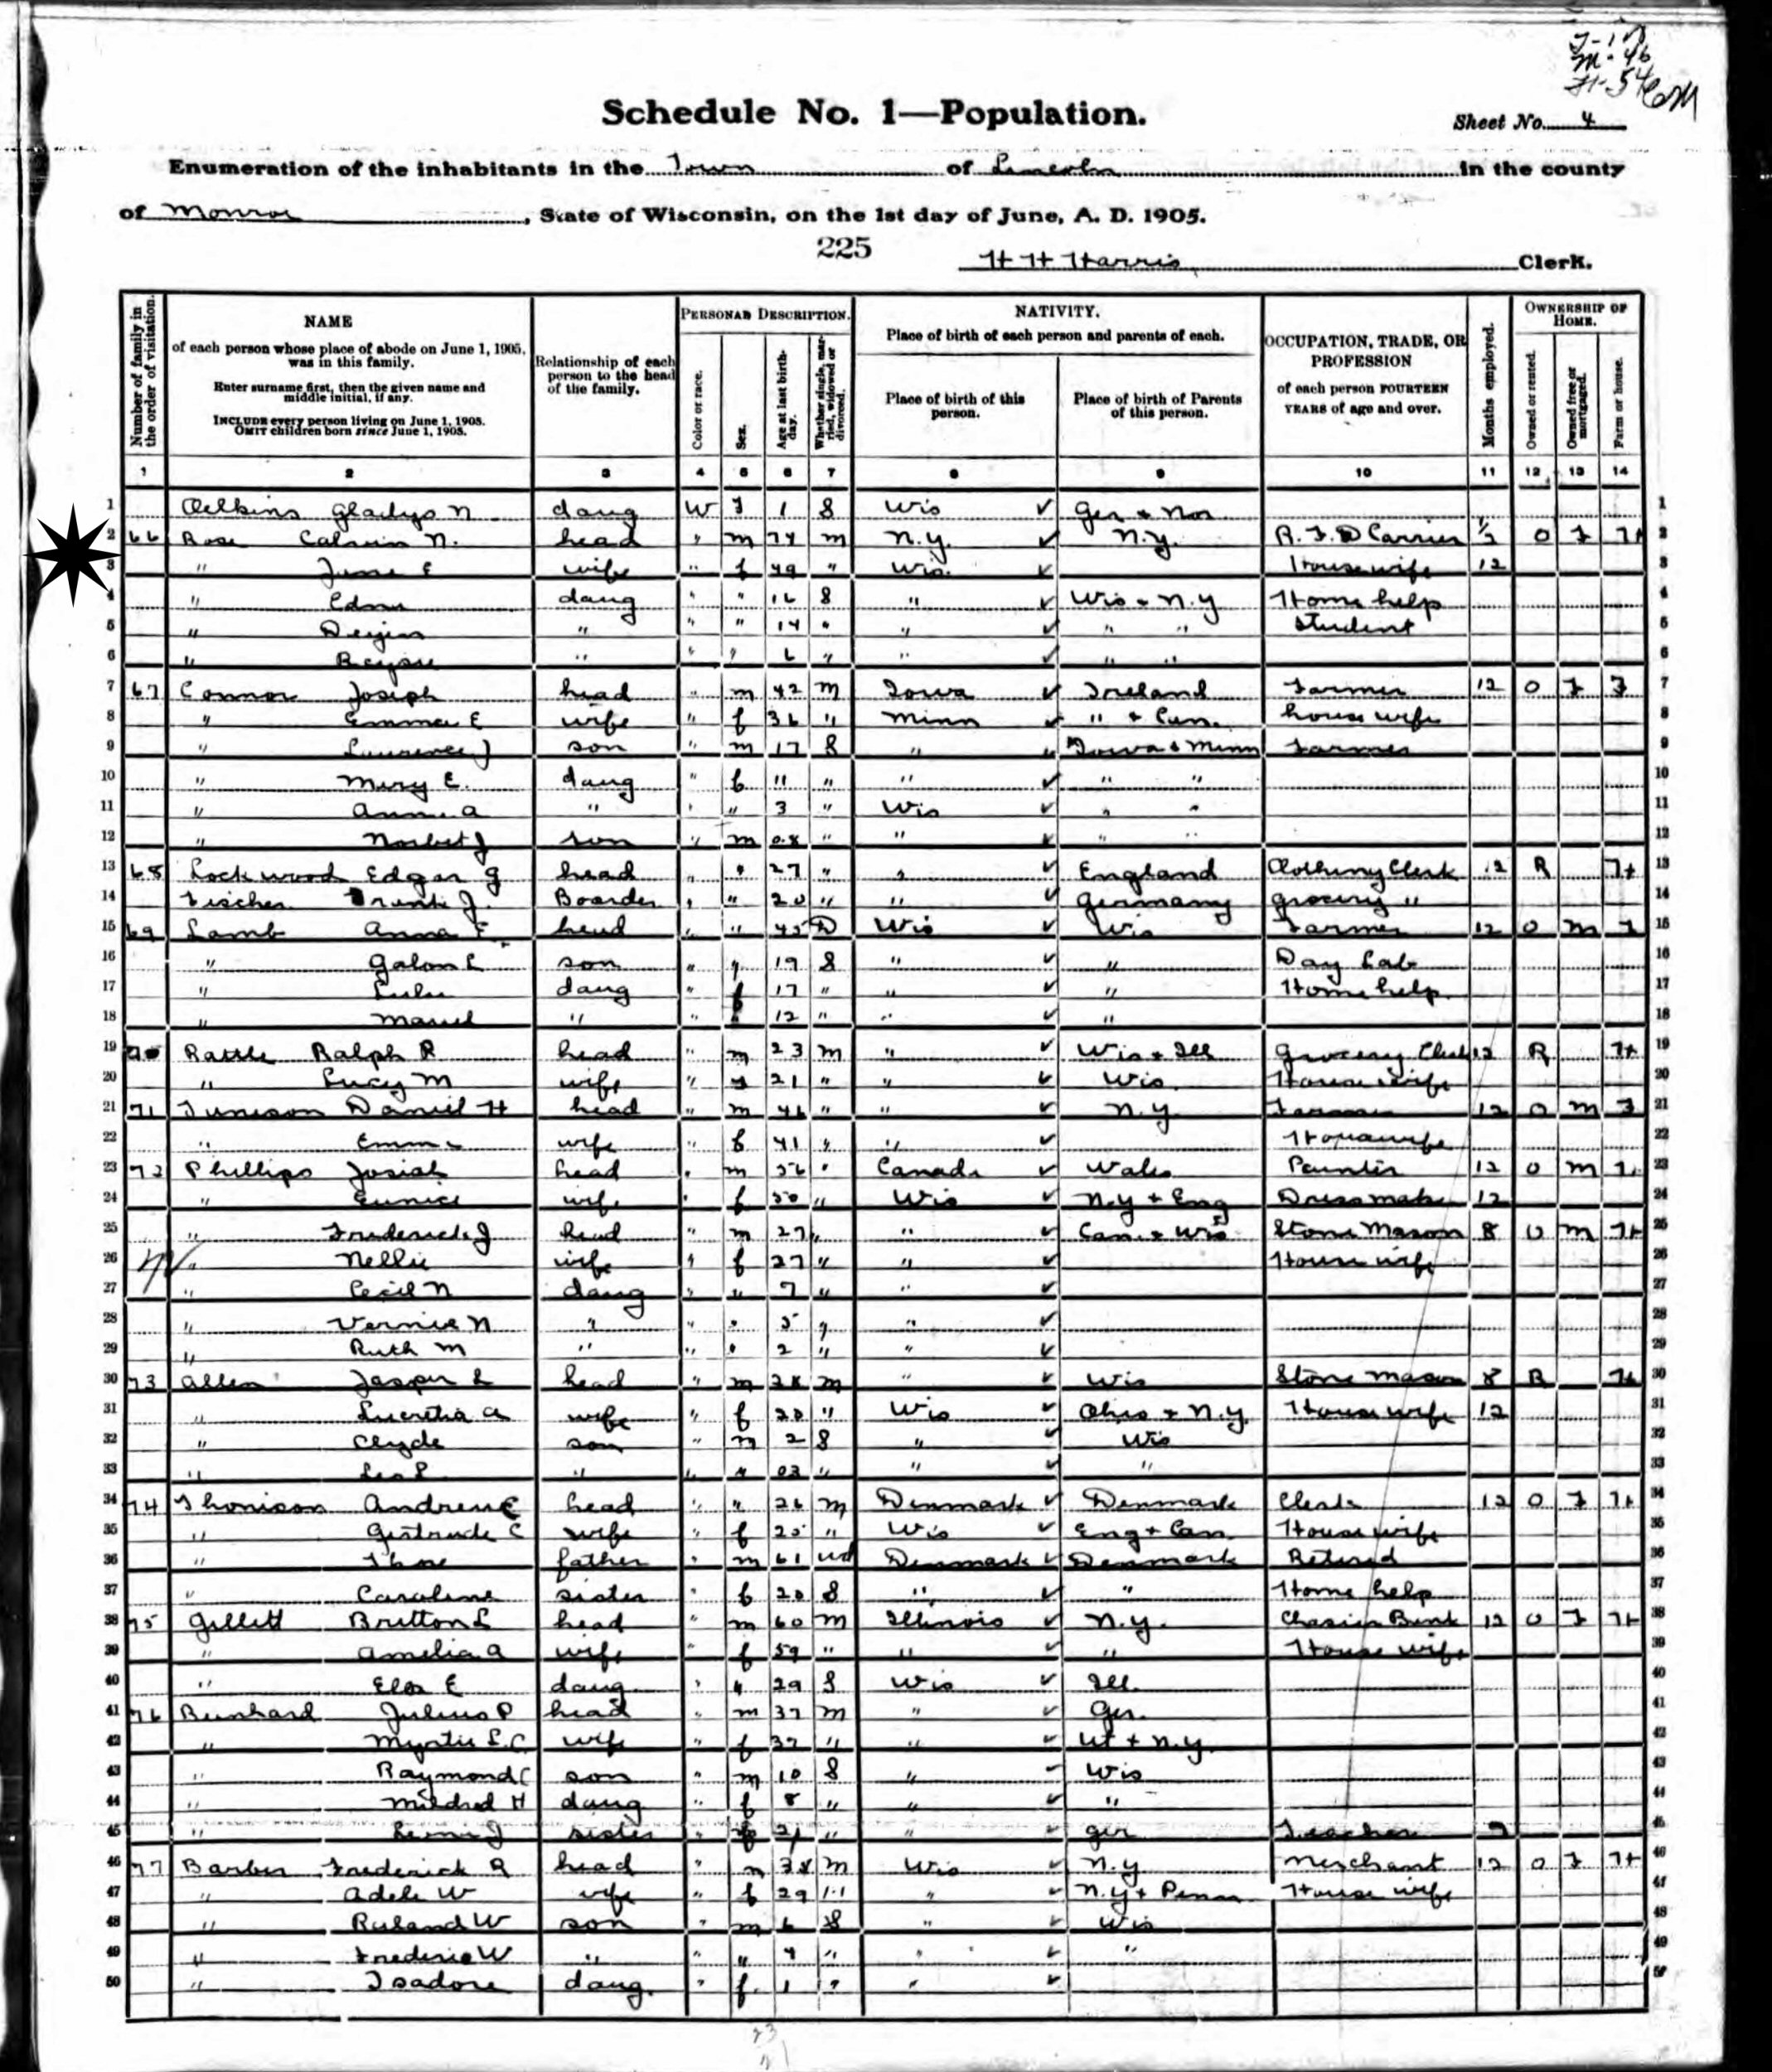 Schedule No. 1—Population.
Sheet No. 4
Enumeration of the inhabitants in the Town of Lincoln in the county
of Monroe, State of Wisconsin, on the 1st day of June, A. D. 1905.
225
H H Harris Clerk.
Number of family in the order of visitation.
NAME
of each person whose place of abode on June 1, 1905, was in this family.
Enter surname first, then the given name and middle initial, if any.
INCLUDE every person living on June 1, 1905.
OMIT children born since June 1, 1905.
Relationship of each person to the head of the family.
PERSONAL DESCRIPTION.
Color or race.
Sex.
Age at last birthday.
Whether single, married, widowed or divorced.
NATIVITY.
Place of birth of each person and parents of each.
Place of birth of this person.
Place of birth of Parents of this person.
OCCUPATION, TRADE, OR PROFESSION
of each person FOURTEEN YEARS of age and over.
Months employed.
OWNERSHIP OF HOME.
Owned or rented.
Owned free or mortgaged.
Farm or house.
1 2 3 4 5 6 7 8 9 10 11 12 13 14
1 Gladys N daug W F 1 S Wis ✓ Ger & Nor 1
2 66 Rose Calvin N. head " m 74 m N.Y. ✓ N.Y. R. F. D Carrier 1/2 O F H 2
3 " June E wife " f 49 " Wis. ✓ Housewife 12 3
4 " Edna daug " " 16 S " ✓ Wis & N.Y Home help 4
5 " " " " 14 " " ✓ " " Student 5
6 " " " " 6 " " ✓ " " 6
7 67 Connor Joseph head " m 42 m Iowa ✓ Ireland Farmer 12 O F F 7
8 " Emma E wife " f 36 " Minn ✓ " & Can. house wife 8
9 " Laurence J son " m 17 S " " Iowa & Minn Farmer 9
10 " Mary E. daug " f 11 " " ✓ " " 10
11 " Anna A " " " 3 " Wis ✓ " " 11
12 " Norbet J son " m 0.8 " " ✓ " " 12
13 68 Lockwood Edgar G head " " 27 " " ✓ England Clothing Clerk 12 R H 13
14 Fischer Frank J. Boarder " " 20 " " ✓ Germany grocery " 14
15 69 Lamb Anna E head " " 45 D Wis ✓ Wis Farmer 12 O m F 15
16 " Galon L son " " 19 S " ✓ " Day Lab 16
17 " Lulu daug " f 17 " " ✓ " Home help 17
18 " " " 12 " " ✓ " 18
19 70 Rattle Ralph R head " m 23 m " ✓ Wis & Ill Grocery Clerk 12 R H 19
20 " Lucy M wife " f 21 " " ✓ Wis. House wife 20
21 71 Tunison Daniel H head " m 46 " " ✓ N.Y. Farmer 12 O m F 21
22 " Emma wife " f 41 " " ✓ Housewife 22
23 72 Phillips Josiah head " m 56 " Canada ✓ Wales Painter 12 O m 23
24 " Eunice wife " f 50 " Wis ✓ N.Y & Eng Dressmaker 12 24
25 " Frederick J head " m 27 " " ✓ Can. & Wis Stone Mason 8 O m H 25
26 " Nellie wife " f 27 " " ✓ House wife 26
27 " Cecil N daug " " 7 " " ✓ 27
28 " Vernie N " " " 5 " " ✓ 28
29 " Ruth M " " " 2 " " ✓ 29
30 73 Allen Jasper L head " m 28 m " ✓ Wis Stone mason 8 R H 30
31 " Lucretia A wife " f 20 " Wis ✓ Ohio & N.Y. House wife 12 31
32 " Clyde son " m 2 S " ✓ Wis 32
33 " Leo L " " " 03 " " ✓ " 33
34 74 Thonison Andrew E head " " 26 m Denmark ✓ Denmark Clerk 12 O F H 34
35 " Gertrude C wife " f 25 " Wis ✓ Eng & Can. House wife 35
36 " father " m 61 wd Denmark ✓ Denmark Retired 36
37 " Caroline sister " f 20 S " ✓ " Home help 37
38 75 Gillett Britton L head " m 60 m Illinois ✓ N.Y. Chasier Bank 12 O F H 38
39 " Amelia A wife " f 59 " " ✓ " House wife 39
40 " Ella E daug " " 29 S Wis ✓ Ill. 40
41 76 Bernhard Julius P head " m 37 m " ✓ Ger. 41
42 " Myrtie L. C. wife " f 37 " " ✓ Vt & N.Y. 42
43 " Raymond C son " m 10 S " Wis 43
44 " Mildred H daug " f 8 " " ✓ " 44
45 " sister " f 21 " " ✓ Ger Teacher 45
46 77 Barber Frederick R head " m 38 m Wis ✓ N.Y Merchant 12 O F H 46
47 " Adele W wife " f 29 " " ✓ N.Y & Penn House wife 47
48 " Ruland W son " m 6 S " ✓ Wis 48
49 " Frederic W " " " 4 " " ✓ " 49
50 " Isadore daug. " f. 1 " " ✓ 50